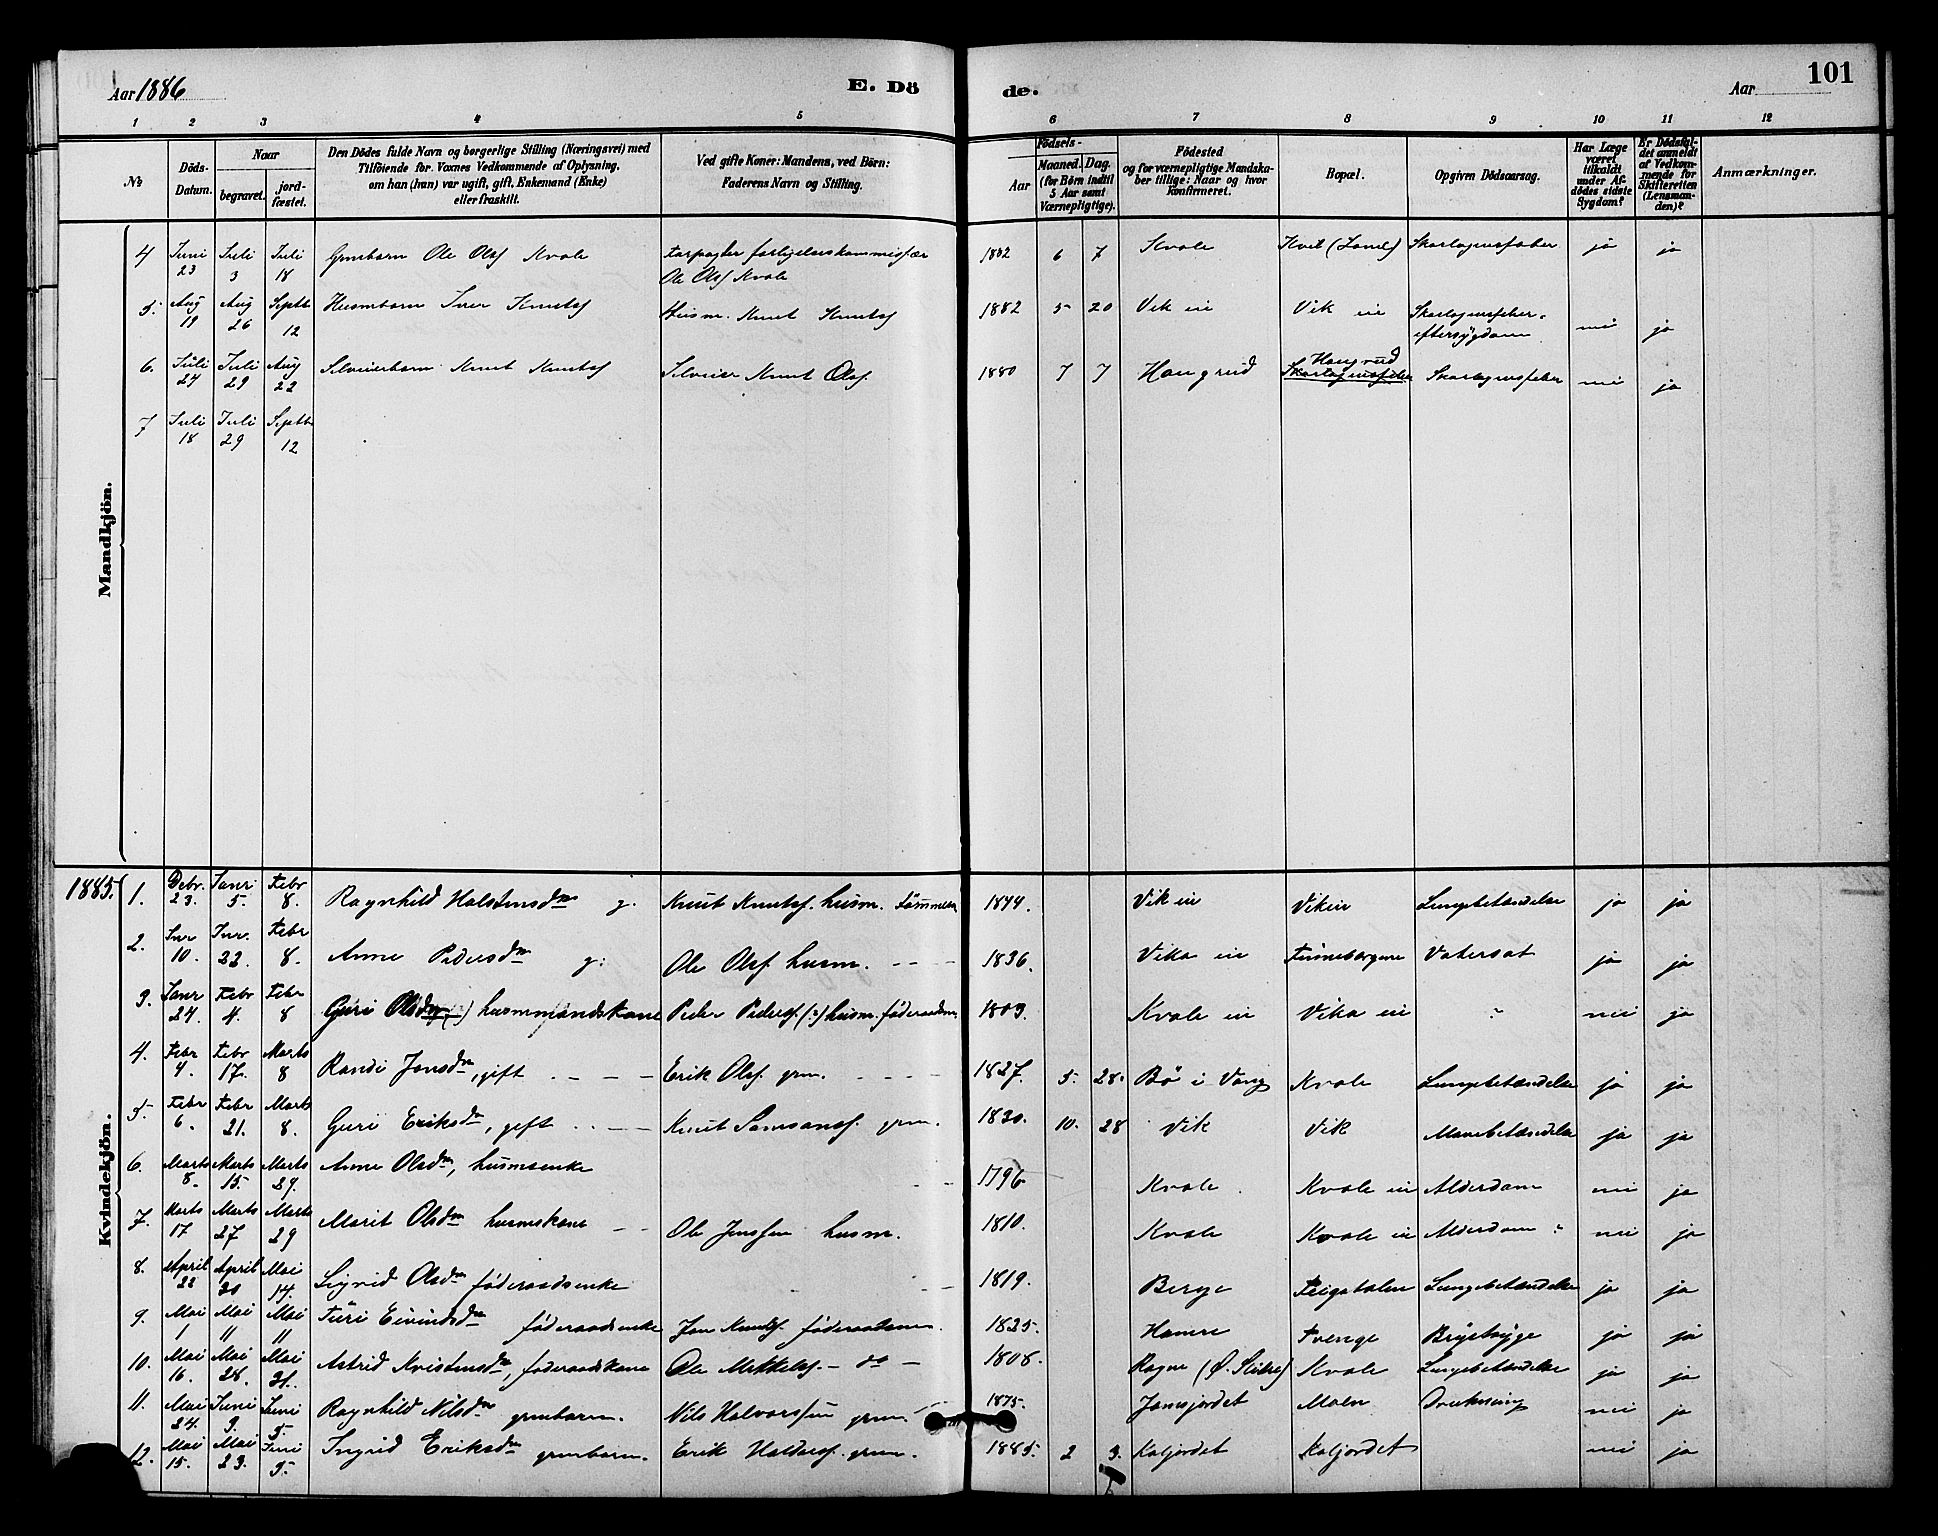 Aar 1886 E. Döde. Aar 101
1 2 3 4 5 6 7 8 9 10 11 12
№ Döds-Datum. Naar begravet. jordfæstet. Den Dödes fulde Navn og borgerlige Stilling (Næringsvei) med Tilföiende for Voxnes Vedkommende af Oplysning, om han (hun) var ugift, gift, Enkemand (Enke) eller fraskilt. Ved gifte Koner: Mandens, ved Börn: Faderens Navn og Stilling. Födsels- Aar Maaned. Dag. (for Börn indtil 5 Aar samt Værnepligtige). Födested og for værnepligtige Mandskaber tillige: Naar og hvor konfirmeret. Bopæl. Opgiven Dödsaarsag. Har Læge været tilkaldt under Afdödes sidste Sygdom? Er Dödsfaldet anmeldt af Vedkommende for Skifteretten (Lensmanden)? Anmærkninger.
Mandkjön.
4 Juni 23 Juli 3 Juli 18 Grmbarn Ole Olsf Kvale Forpagter forligelseskommissær Ole Olsf Kvale 1882 6 7 Kvale Kvit (Land) Skarlagensfeber ja ja
5. Aug 19 Aug 26 Septb 12 Husmbarn Iver Knutsf Husm. Knut Knutsf 1882 5 20 Vik ei Vik ei Skarlagensfeber eftersygdom nei ja
6. Juli 24 Juli 29 Aug 22 Selveierbarn Knut Knutsf Selveier Knut Olsf. 1880 7 7 Haugrud Haugrud Skarlagensfeber Skarlagensfeber nei ja
7 Juli 18 Juli 29 Septb 12
Kvindekjön.
1885. 1. Debr. 23. Janr 5. Febr 8. Ragnhild Halstensdr g. Knut Knutsf. husm. 1844. Vik ei Vik ei Lungebetændelse ja ja
2. Jnr 10. Jnr. 22. Febr 8. Anne Pedersdr g. Ole Olsf husm. 1836. Vika ei Vatersot ja ja
3. Janr 24. Febr 4. Febr 8 Guri Olsdr (?) husmmandskone Peder Pedersf. (?) husm. föderaadsm. 1803. Kvale ei Vika ei " nei ja
4. Febr 4. Febr 17. Marts 8 Randi Jonsdr, gift Erik Olsf. grm. 1827. 5. 28. Bö i Vang Kvale Lungebetændelse ja ja
5. Febr 6. Febr 21. Marts 8. Guri Eriksdr, gift Knut Samsonsf. grm. 1820. 10. 28 Vik Vik Mavebetændelse ja ja
6. Marts 8. Marts 15. Marts 29. Anne Olsdr, husmsenke 1796 Kvale Kvale ei Alderdom nei ja
7. Marts 17 Marts 27 Marts 29 Marit Olsdr husmskone Ole Jenssen husm. 1810. Kvale Kvale ei Alderdom " nei ja
8. April 22 April 30 Mai 14. Sigrid Olsdr föderaadsenke 1819. Berge Lungebetændelse ja ja
9. Mai 1 Mai 11 Mai 11 Turi Eivindsdr föderaadsenke Jon Knutsf. föderaadsm. 1825. Hamre Tvenge Brystsyge ja ja
10. Mai 16. Mai 28. Mai 31. Astrid Kristensdr, föderaadskone Ole Mikkelsf. – do – 1808. Rogne (Ø. Slidre) Kvale Lungebetændelse ja ja
11. Mai 24. Juni 3. Juni 5. Ragnhild Nilsdr grmbarn. Nils Halvorssen grm. 1875. Jomsjordet Moen Drukning nei ja
12. Mai 15. Mai 23. Juni 5. Ingrid Eriksdr grmbarn. Erik Haldorsf. grm. 1885. 2 3. Kaljordet Kaljordet nei ja